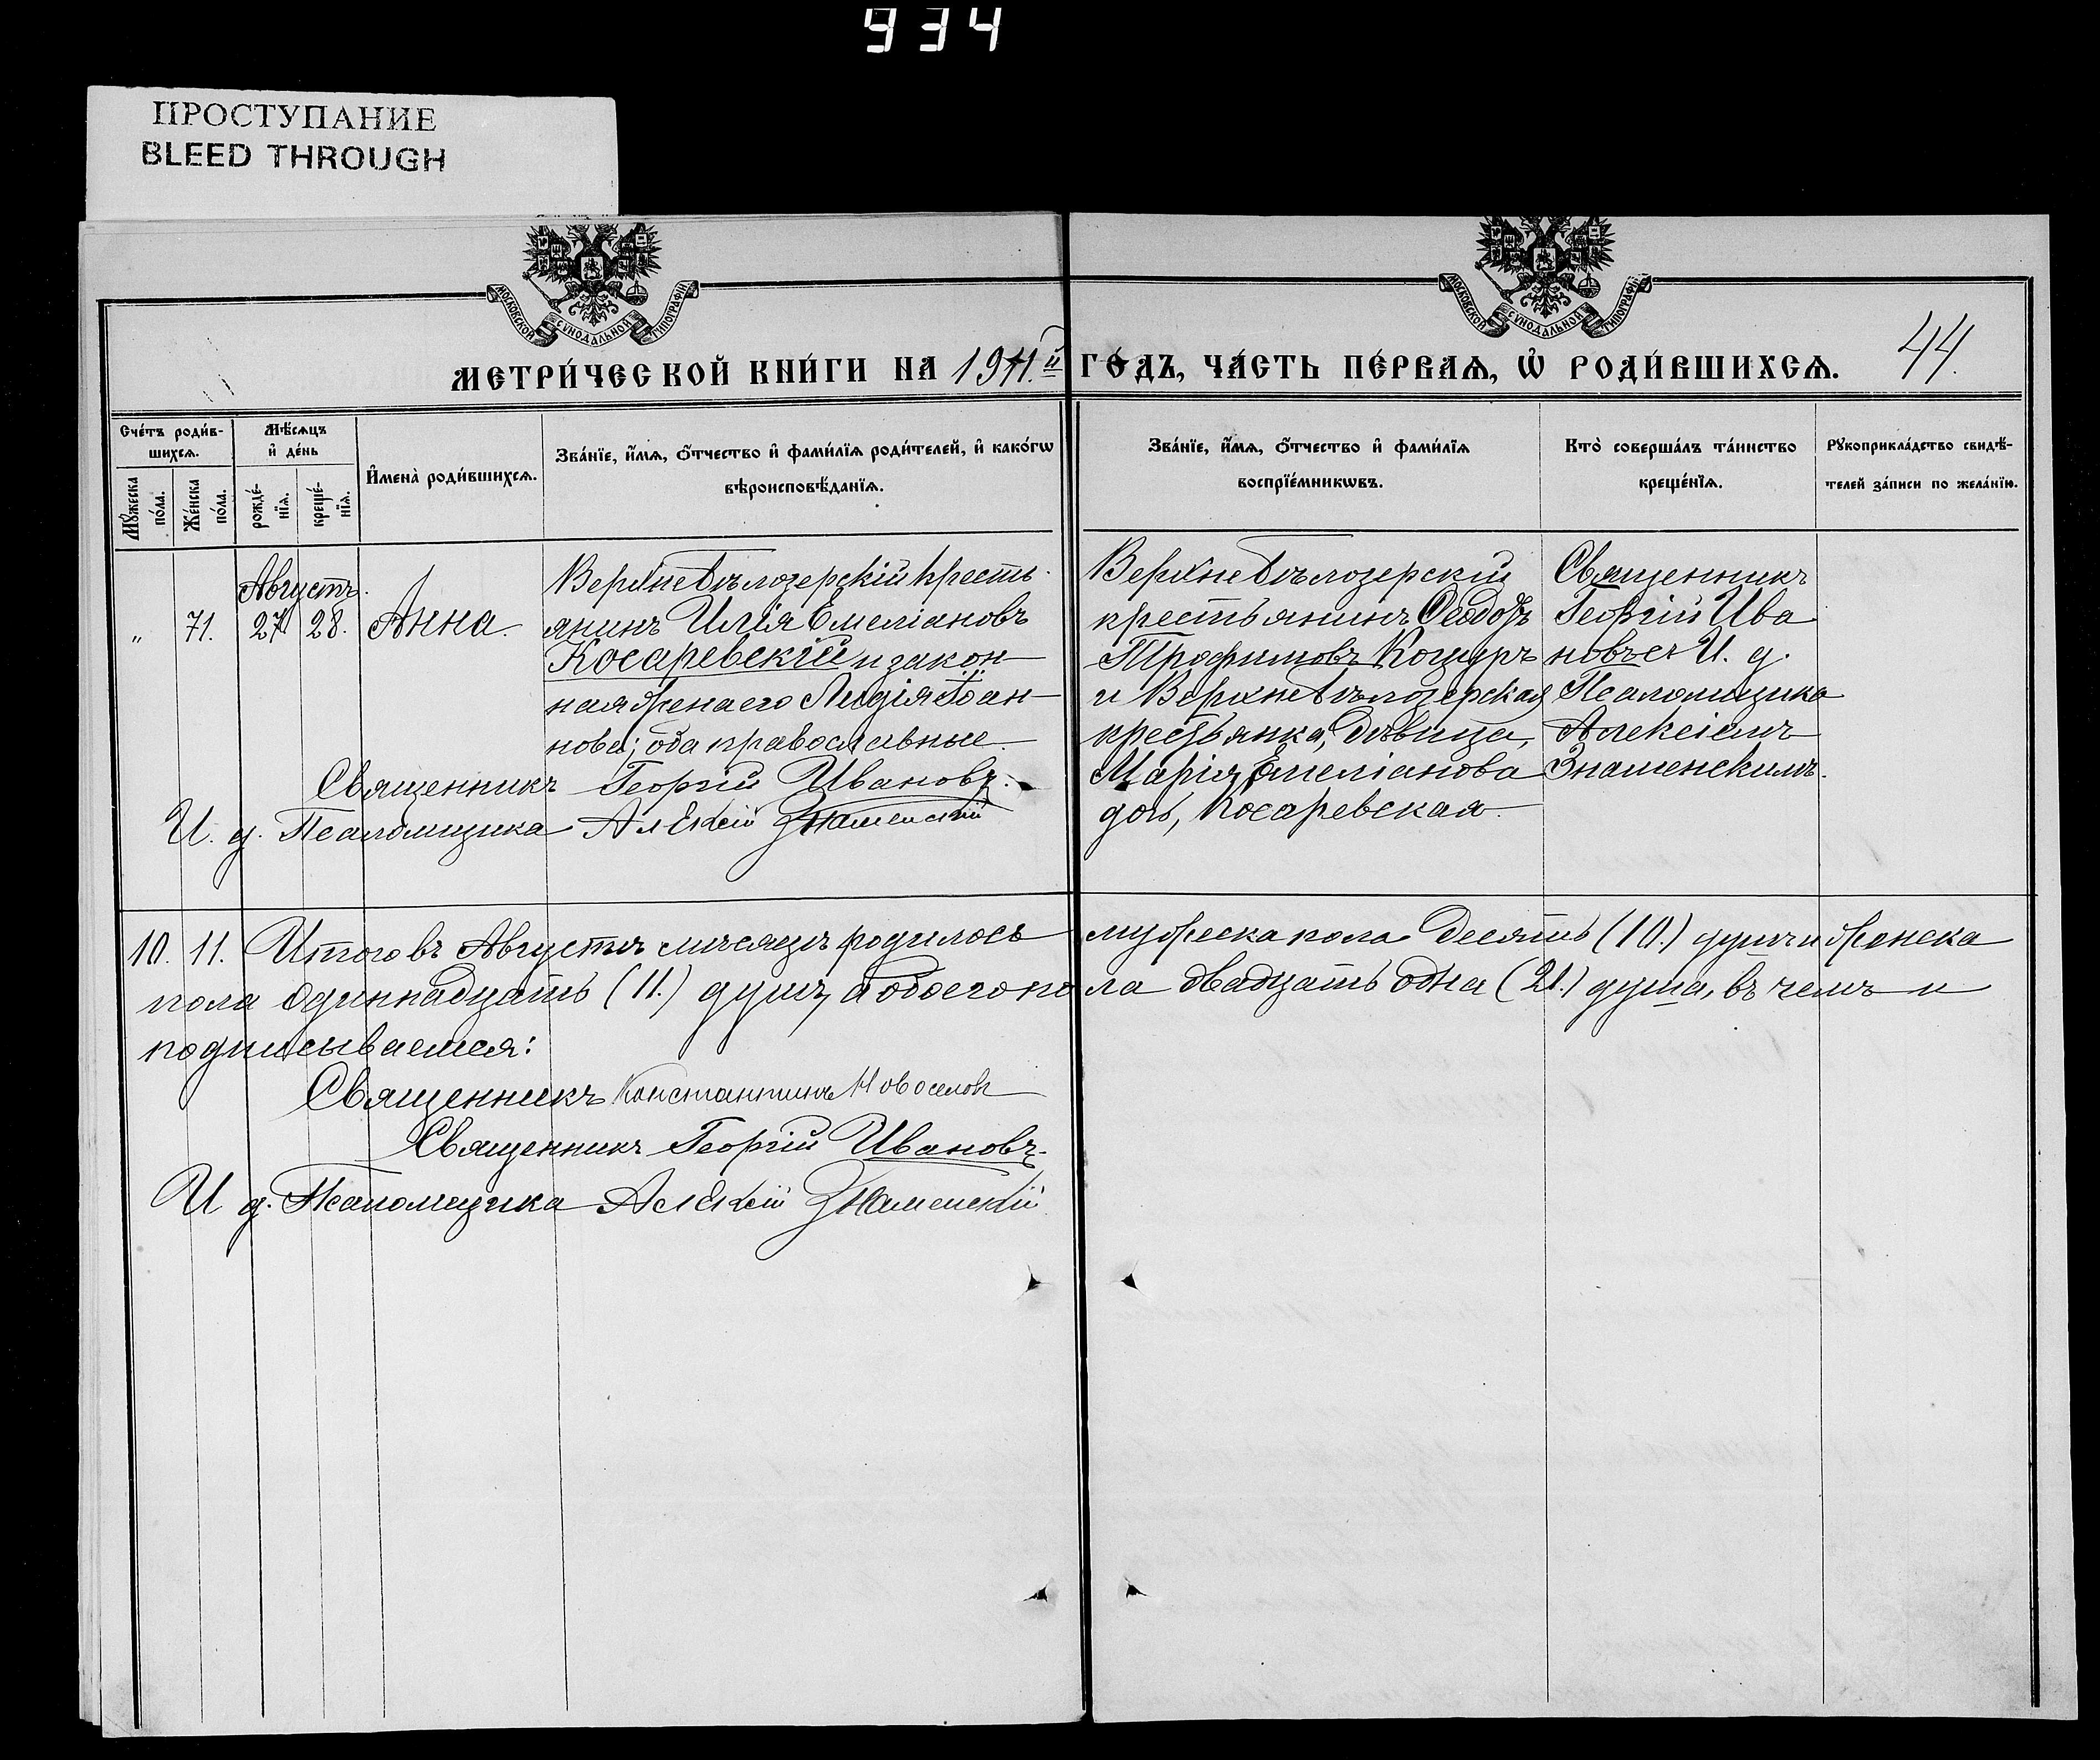 934
ПРОСТУПАНИЕ
BLEED THROUGH
МОСКОВСКОЙ СѴНОДАЛЬНОЙ ТИПОГРАФІИ
МОСКОВСКОЙ СѴНОДАЛЬНОЙ ТИПОГРАФІИ
МЕТРИ́ЧЕСКОЙ КНИ́ГИ НА 1911й ГО́ДЪ, ЧА́СТЬ ПЕ́РВАѦ, Ѡ҆ РОДИ́ВШИХСѦ. 44.
Сче́тъ роди́в-
шихсѧ.
Мꙋ́жеска
по́ла.
Же́нска
по́ла.
Мѣ́сѧцъ
и҆ де́нь
рожде́-
нїѧ.
креще́-
нїѧ.
И҆мена̀ роди́вшихсѧ.
Зва́нїе, и҆́мѧ, ѻ҆́тчество и҆ фами́лїѧ роди́телей, и҆ како́гѡ
вѣроисповѣ́данїѧ.
Зва́нїе, и҆́мѧ, ѻ҆́тчество и҆ фами́лїѧ
воспрїе́мникѡвъ.
Кто̀ соверша́лъ та́инство
креще́нїѧ.
Рꙋкоприкла́дство свидѣ́-
телей за́писи по жела́нїю.
Августъ.
„ 71. 27 28. Анна.
Верхнебѣлозерскій кресть-
янинъ Илія Емеліановъ
Косаревскій и закон-
ная жена его Лидія Іоан-
нова; оба православные.
Верхнебѣлозерскій
крестьянинъ Ѳеодоръ
Трофимовъ Кошуръ
и Верхнебѣлозерская
крестьянка, дѣвица,
Марія Емеліанова
дочь, Косаревская.
Священникъ
Георгій Ива
новъ съ И. д.
Псаломщика
Алексіемъ
Знаменскимъ.
Священникъ Георгій Ивановъ.
И. д. Псаломщика Алексій Знаменскій
10. 11. Итого въ Августѣ мѣсяцѣ родилось мужеска пола десять (10.) душъ и женска
пола одиннадцать (11.) душъ, а обоего пола двадцать одна (21.) душа, въ чемъ и
подписываемся:
Священникъ Константинъ Новоселовъ
Священникъ Георгій Ивановъ.
И д. Псаломщика Алексій Знаменскій